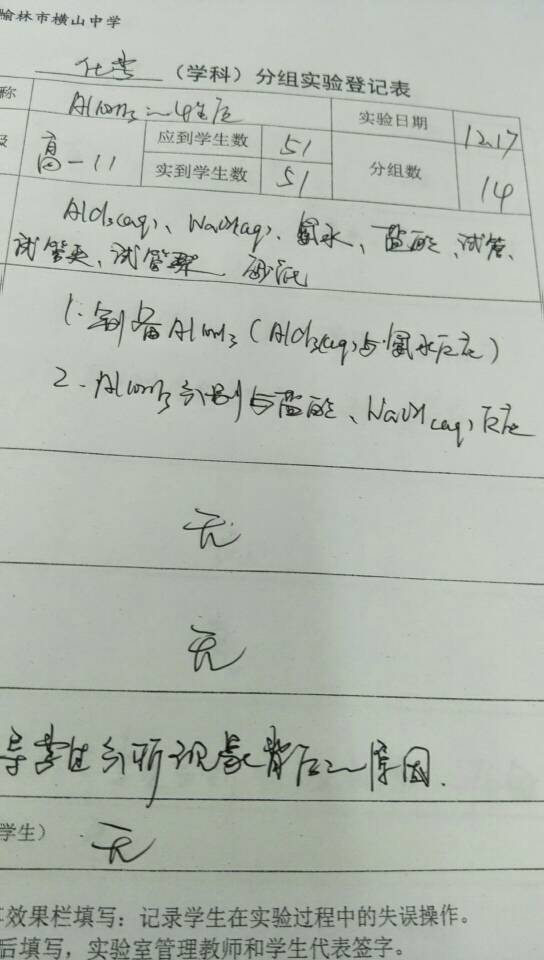 榆林市横山中学
化学 (学科) 分组实验登记表
称 Al(OH)₃的性质 实验日期 12.17
级 高一11 应到学生数 51 分组数 14
实到学生数 51
AlCl₃(aq)、NaOH(aq)、氨水、盐酸、试管、
试管夹、试管架
1. 制备Al(OH)₃(AlCl₃(aq)与氨水反应)
2. Al(OH)₃分别与盐酸、NaOH(aq)反应
无
无
导学生分析现象背后的原因.
学生) 无
效果栏填写:记录学生在实验过程中的失误操作。
后填写,实验室管理教师和学生代表签字。